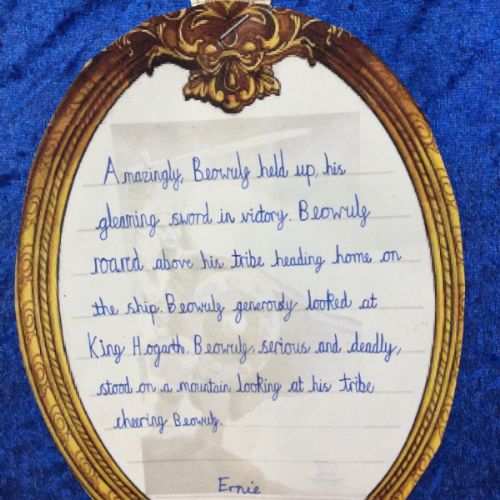 Amazingly, Beowulf held up, his
gleaming sword in victory. Beowulf
roared above his tribe heading home on
the ship. Beowulf generously looked at
King Hogarth. Beowulf, serious and deadly,
stood on a mountain looking at his tribe
cheering Beowulf.
Ernie